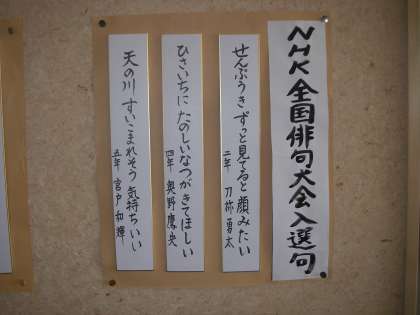 NHK全国俳句大会入選句
せんぷうき ずっと見てると 顔みたい
二年 刀祢勇太
ひさいちに たのしいなつが きてほしい
四年 奥野鷹央
天の川 すいこまれそう 気持ちいい
五年 宮戸和輝